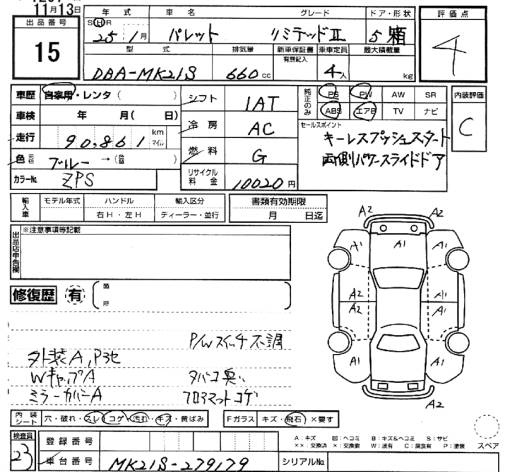 11月13日
出品番号 15
年式 車名 グレード ドア・形状
S H R 25年1月 パレット リミテッドⅡ 5 箱
型式 排気量 新車保証書 有無記入 乗車定員 最大積載量
DBA-MK21S 660cc 4人 kg
評価点 4
車歴 自家用・レンタ( )
車検 年 月(日)
走行 90,861 km マイル
色 ブルー→(色)
カラーNo. ZPS
シフト 1AT
冷房 AC
燃料 G
リサイクル料金 10020円
純正のみ PS PW AW SR
ABS エアB TV ナビ
セールスポイント
キーレスプッシュスタート
両側パワースライドドア
内装評価 C
輸入車 モデル年式 ハンドル 輸入区分
右H・左H ディーラー・並行
書類有効期限
月 日迄
出品店申告欄 ※注意事項等記載
修復歴 有 箇所
P/Wスイッチ不調
外装A,P他
WキャップA タバコ臭い
ミラーカバーA フロアマットコゲ
A2
A1 A1 A1
A2 A1 A1
A2 A1 A1
A2
内装シート 穴・破れ・スレ・コゲ・汚れ・キズ・黄ばみ
Fガラス キズ・飛石・×要す
検査員 23
登録番号
車台番号 MK21S-279179 シリアルNo.
A:キズ 凹:ヘコミ B:キズ&ヘコミ S:サビ
××:交換済 ×:要交換 W:波有 C:腐食有 P:塗装
スペア